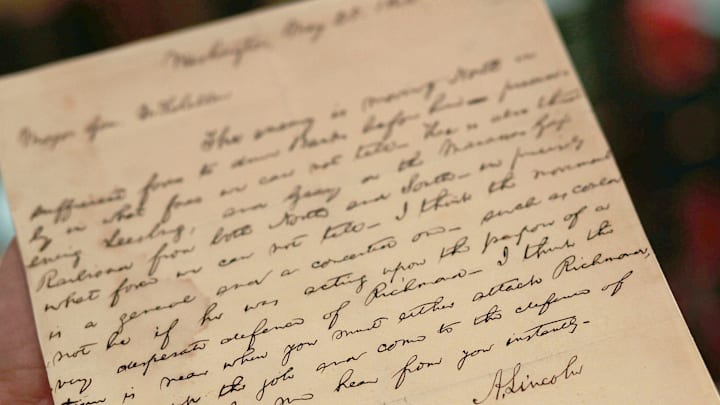 Washington, May 25. 18
Major Gen. McClellan
The enemy is moving North in
sufficient force to drive Banks before him— precise-
ly in what force we can not tell— He is also threat-
ening Leesburg, and Geary on the Manassas Gap
Railroad from both North and South— in precisely
what force we can not tell— I think the movement
is a general and concerted one— such as could
not be if he was acting upon the purpose of a
very desperate defence of Richmond— I think the
time is near when you must either attack Richmond,
up the job and come to the defence of
me hear from you instantly—
A. Lincoln